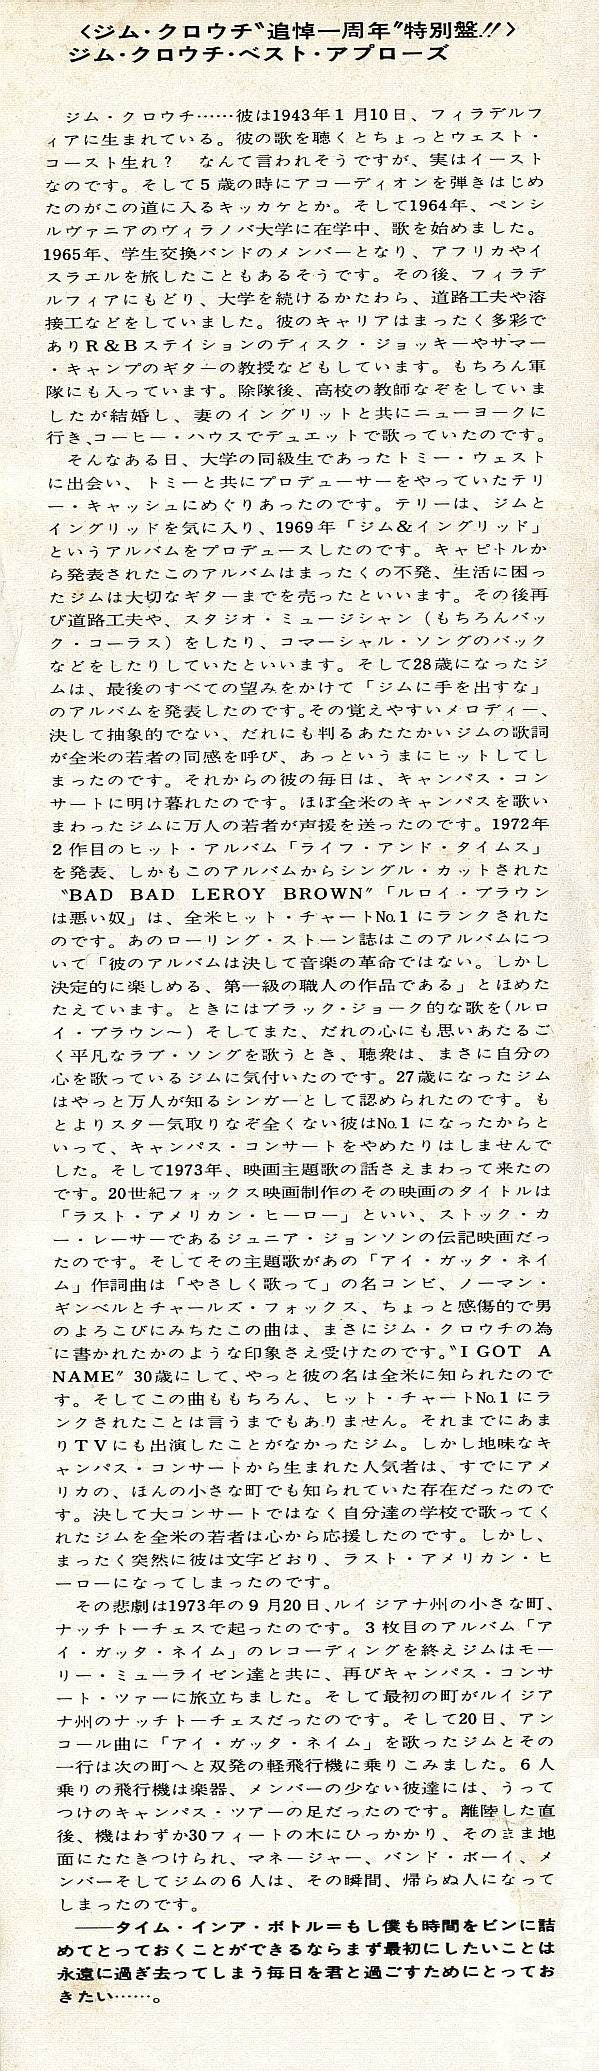 〈ジム・クロウチ〝追悼一周年〟特別盤!!〉
ジム・クロウチ・ベスト・アプローズ
ジム・クロウチ……彼は1943年1月10日、フィラデルフ
ィアに生まれている。彼の歌を聴くとちょっとウェスト・
コースト生れ？　なんて言われそうですが、実はイースト
なのです。そして5歳の時にアコーディオンを弾きはじめ
たのがこの道に入るキッカケとか。そして1964年、ペンシ
ルヴァニアのヴィラノバ大学に在学中、歌を始めました。
1965年、学生交換バンドのメンバーとなり、アフリカやイ
スラエルを旅したこともあるそうです。その後、フィラデ
ルフィアにもどり、大学を続けるかたわら、道路工夫や溶
接工などをしていました。彼のキャリアはまったく多彩で
ありR＆Bステイションのディスク・ジョッキーやサマー
・キャンプのギターの教授などもしています。もちろん軍
隊にも入っています。除隊後、高校の教師なぞをしていま
したが結婚し、妻のイングリットと共にニューヨークに
行き、コーヒー・ハウスでデュエットで歌っていたのです。
そんなある日、大学の同級生であったトミー・ウェスト
に出会い、トミーと共にプロデューサーをやっていたテリ
ー・キャッシュにめぐりあったのです。テリーは、ジムと
イングリッドを気に入り、1969年「ジム＆イングリッド」
というアルバムをプロデュースしたのです。キャピトルか
ら発表されたこのアルバムはまったくの不発、生活に困っ
たジムは大切なギターまでを売ったといいます。その後再
び道路工夫や、スタジオ・ミュージシャン（もちろんバッ
ク・コーラス）をしたり、コマーシャル・ソングのバック
などをしたりしていたといいます。そして28歳になったジ
ムは、最後のすべての望みをかけて「ジムに手を出すな」
のアルバムを発表したのです。その覚えやすいメロディー、
決して抽象的でない、だれにも判るあたたかいジムの歌詞
が全米の若者の同感を呼び、あっというまにヒットしてし
まったのです。それからの彼の毎日は、キャンパス・コン
サートに明け暮れたのです。ほぼ全米のキャンパスを歌い
まわったジムに万人の若者が声援を送ったのです。1972年
2作目のヒット・アルバム「ライフ・アンド・タイムス」
を発表、しかもこのアルバムからシングル・カットされた
〝BAD BAD LEROY BROWN〟「ルロイ・ブラウン
は悪い奴」は、全米ヒット・チャートNo.1にランクされた
のです。あのローリング・ストーン誌はこのアルバムにつ
いて「彼のアルバムは決して音楽の革命ではない。しかし
決定的に楽しめる、第一級の職人の作品である」とほめた
たえています。ときにはブラック・ジョーク的な歌を(ルロ
イ・ブラウン～）そしてまた、だれの心にも思いあたるご
く平凡なラブ・ソングを歌うとき、聴衆は、まさに自分の
心を歌っているジムに気付いたのです。27歳になったジム
はやっと万人が知るシンガーとして認められたのです。も
とよりスター気取りなぞ全くない彼はNo.1になったからと
いって、キャンパス・コンサートをやめたりはしませんで
した。そして1973年、映画主題歌の話さえまわって来たの
です。20世紀フォックス映画制作のその映画のタイトルは
「ラスト・アメリカン・ヒーロー」といい、ストック・カ
ー・レーサーであるジュニア・ジョンソンの伝記映画だっ
たのです。そしてその主題歌があの「アイ・ガッタ・ネイ
ム」作詞曲は「やさしく歌って」の名コンビ、ノーマン・
ギンベルとチャールズ・フォックス、ちょっと感傷的で男
のよろこびにみちたこの曲は、まさにジム・クロウチの為
に書かれたかのような印象さえ受けたのです。〝I GOT A
NAME〟30歳にして、やっと彼の名は全米に知られたので
す。そしてこの曲ももちろん、ヒット・チャートNo.1にラ
ンクされたことは言うまでもありません。それまでにあま
りTVにも出演したことがなかったジム。しかし地味なキ
ャンパス・コンサートから生まれた人気者は、すでにアメ
リカの、ほんの小さな町でも知られていた存在だったので
す。決して大コンサートではなく自分達の学校で歌ってく
れたジムを全米の若者は心から応援したのです。しかし、
まったく突然に彼は文字どおり、ラスト・アメリカン・ヒ
ーローになってしまったのです。
その悲劇は1973年の9月20日、ルイジアナ州の小さな町、
ナッチトーチェスで起ったのです。3枚目のアルバム「ア
イ・ガッタ・ネイム」のレコーディングを終えジムはモー
リー・ミューライゼン達と共に、再びキャンパス・コンサ
ート・ツァーに旅立ちました。そして最初の町がルイジア
ナ州のナッチトーチェスだったのです。そして20日、アン
コール曲に「アイ・ガッタ・ネイム」を歌ったジムとその
一行は次の町へと双発の軽飛行機に乗りこみました。6人
乗りの飛行機は楽器、メンバーの少ない彼達には、うって
つけのキャンパス・ツアーの足だったのです。離陸した直
後、機はわずか30フィートの木にひっかかり、そのまま地
面にたたきつけられ、マネージャー、バンド・ボーイ、メ
ンバーそしてジムの6人は、その瞬間、帰らぬ人になって
しまったのです。
──タイム・インア・ボトル＝もし僕も時間をビンに詰
めてとっておくことができるならまず最初にしたいことは
永遠に過ぎ去ってしまう毎日を君と過ごすためにとってお
きたい……。